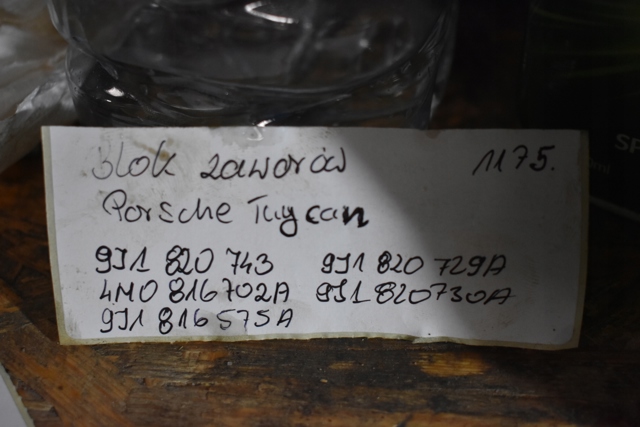 Blok zaworów 1175.
Porsche Taycan
9J1 820 743 9J1 820 729A
4M0 816702A 9J1820730A
9J1 816575A
SP